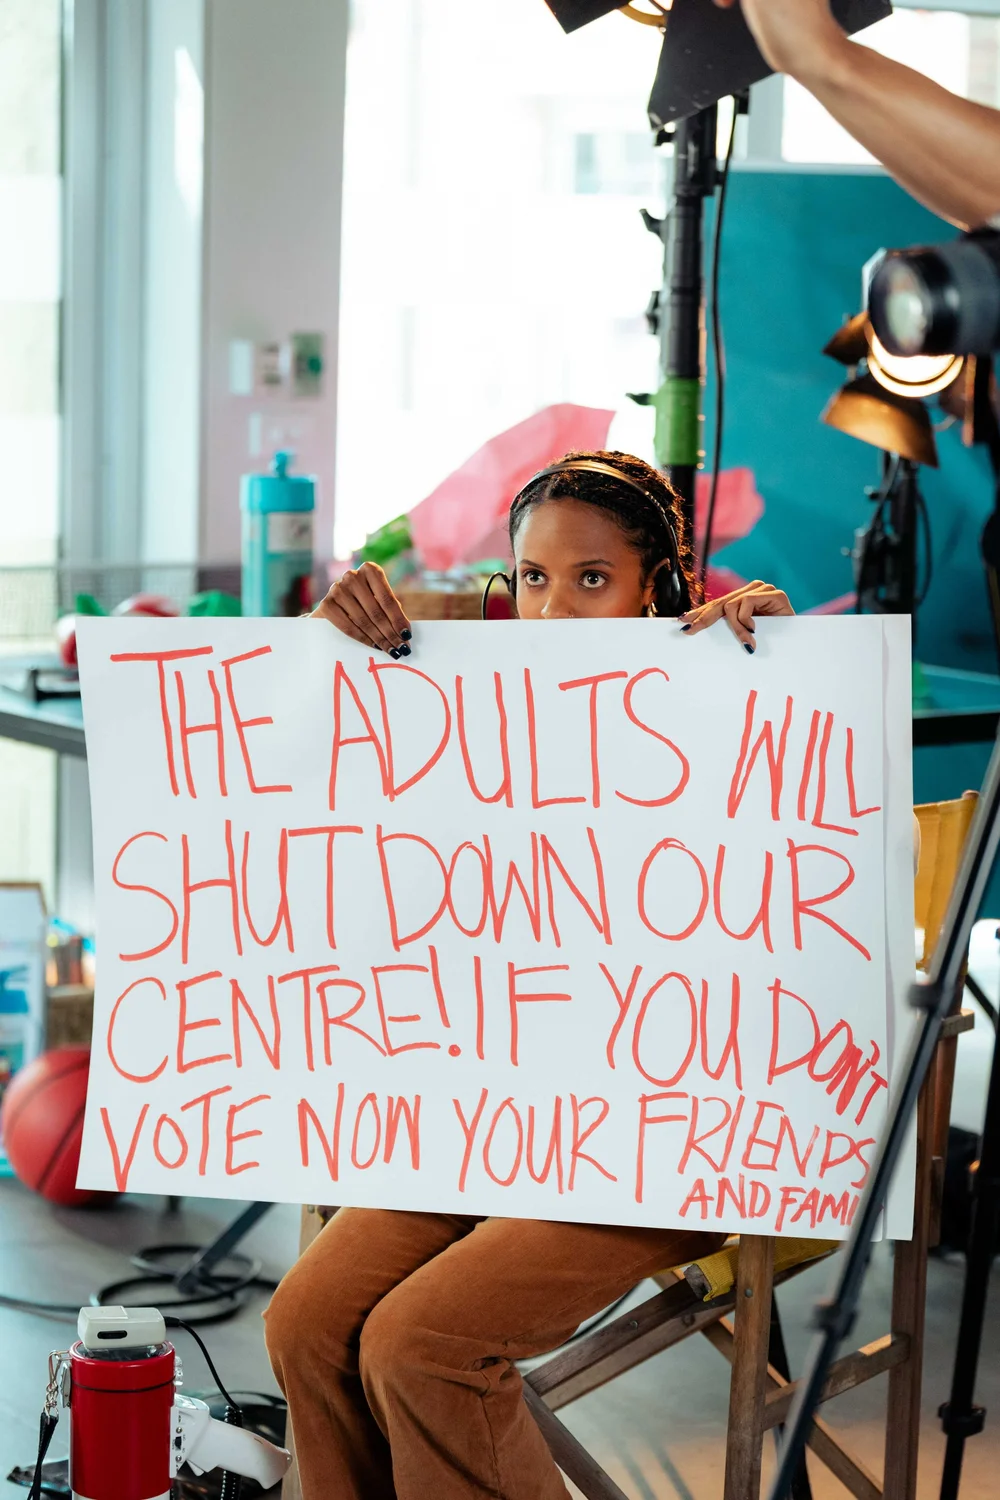 THE ADULTS WILL
SHUTDOWN OUR
CENTRE! IF YOU DON'T
VOTE NOW YOUR FRIENDS
AND